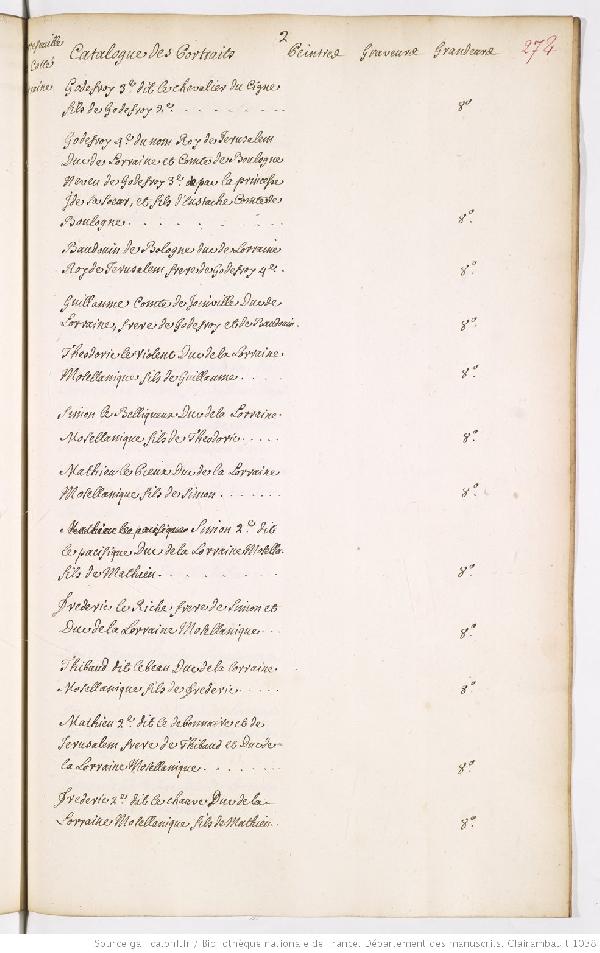 2
Catalogue des Portraits Peintres Graveurs Grandeurs 274
Godefroy 3e dit le chevalier du Cigne
fils de Godefroy 2e. 8o
Godefroy 4e du nom Roy de Jerusalem
Duc de Lorraine et Comte de Boulogne
Neveu de Godefroy 3e par la princesse
Jde sa soeur, et fils d'Eustache Comte de
Boulogne 8o.
Baudouin de Bologne duc de Lorraine
Roy de Jerusalem frere de Godefroy 4e. 8o.
Guillaume Comte de Joinville Duc de
Lorraine, frere de Godefroy et de Baudouin. 8o.
Theodoric le violent Duc de la Lorraine
Mosellanique fils de Guillaume 8o.
Simon le Belliqueux Duc de la Lorraine
Mosellanique fils de Theodoric 8o.
Mathieu le Duc de la Lorraine
Mosellanique fils de Simon 8o.
Mathieu le pacifique Simon 2e dit
le pacifique Duc de la Lorraine Mosella.
fils de Mathieu 8o.
Frederic le Riche frere de Simon et
Duc de la Lorraine Mosellanique 8o.
Thibaud dit le beau Duc de la Lorraine
Mosellanique fils de Frederic 8o.
Mathieu 2e. dit le debonnaire et de
Jerusalem frere de Thibaud et Duc de
la Lorraine Mosellanique 8o.
Frederic 2e. dit le chauve Duc de la
Lorraine Mosellanique fils de Mathieu 8o.
Source gallica.bnf.fr / Bibliothèque nationale de France. Département des manuscrits. Clairambault 1038